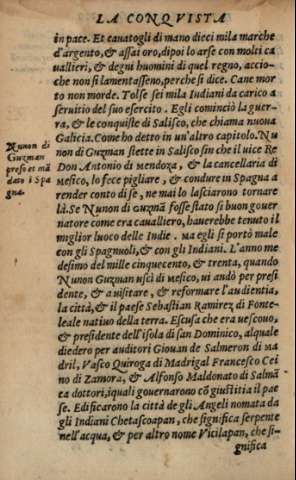 LA CONQVISTA
in pace. Et cauatogli di mano dieci mila marche
d'argento, & assai oro, dipoi lo arse con molti ca
uallieri, & degni huomini di quel regno, accio-
che non si lamentasseno, perche si dice. Cane mor
to non morde. Tolse sei mila Indiani da carico a
seruitio del suo esercito. Egli cominciò la guer-
ra, & le conquiste di Salisco, che chiama nuoua
Galicia. Come ho detto in un'altro capitolo. Nu
non di Guzman stette in Salisco sin che il uice Re
Don Antonio di Mendoza, & la cancellaria di
Mesico, lo fece pigliare, & condure in Spagna a
render conto di se, ne mai lo lasciarono tornare
là. Se Nunon di Guzmã fosse stato si buon gouer
natore come era cauallliero, hauerebbe tenuto il
miglior luoco delle Indie. Ma egli si portò male
con gli Spagnuoli, & con gli Indiani. L'anno me
desimo del mille cinquecento, & trenta, quando
Nunon Guzman uscì di Mesico, ui andò per presi
dente, & a uisitare, & reformare l'audientia,
la città, & il paese Sebastian Ramirez di Fonte-
leale natiuo della terra. Escusa che era uescouo,
& presidente dell'isola di san Dominico, alquale
diedero per auditori Giouan de Salmeron di Ma
dril, Vasco Quiroga di Madrigal Francesco Cei
no di Zamora, & Alfonso Maldonato di Salmã
ca dottori, iquali gouernarono cõ giustitia il pae
se. Edificarono la città de gli Angeli nomata da
gli Indiani Chetascoapan, che significa serpente
nell'acqua, & per altro nome Vicilapan, che si-
gnifica
Nunon di
Guzman
preso et mã
dato i Spa
gna.